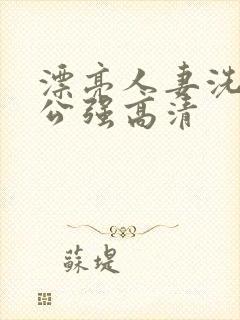 漂亮人妻洗
公强高清
蘇堤